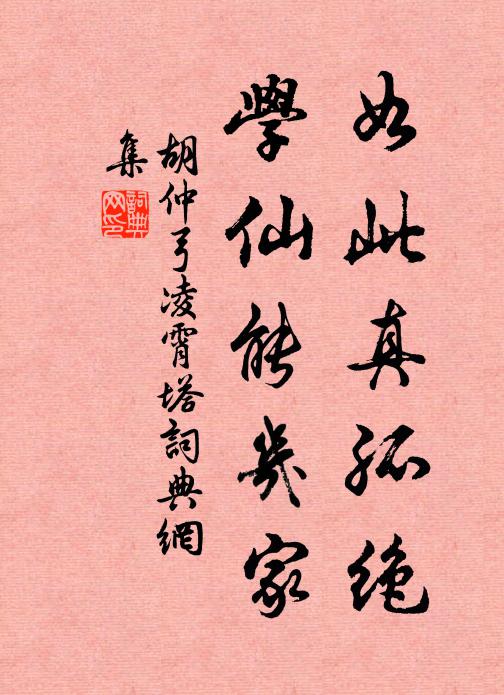 如此真孤絕
學仙能幾家
胡仲弓凌霄塔詞典網
集
詞典
网印